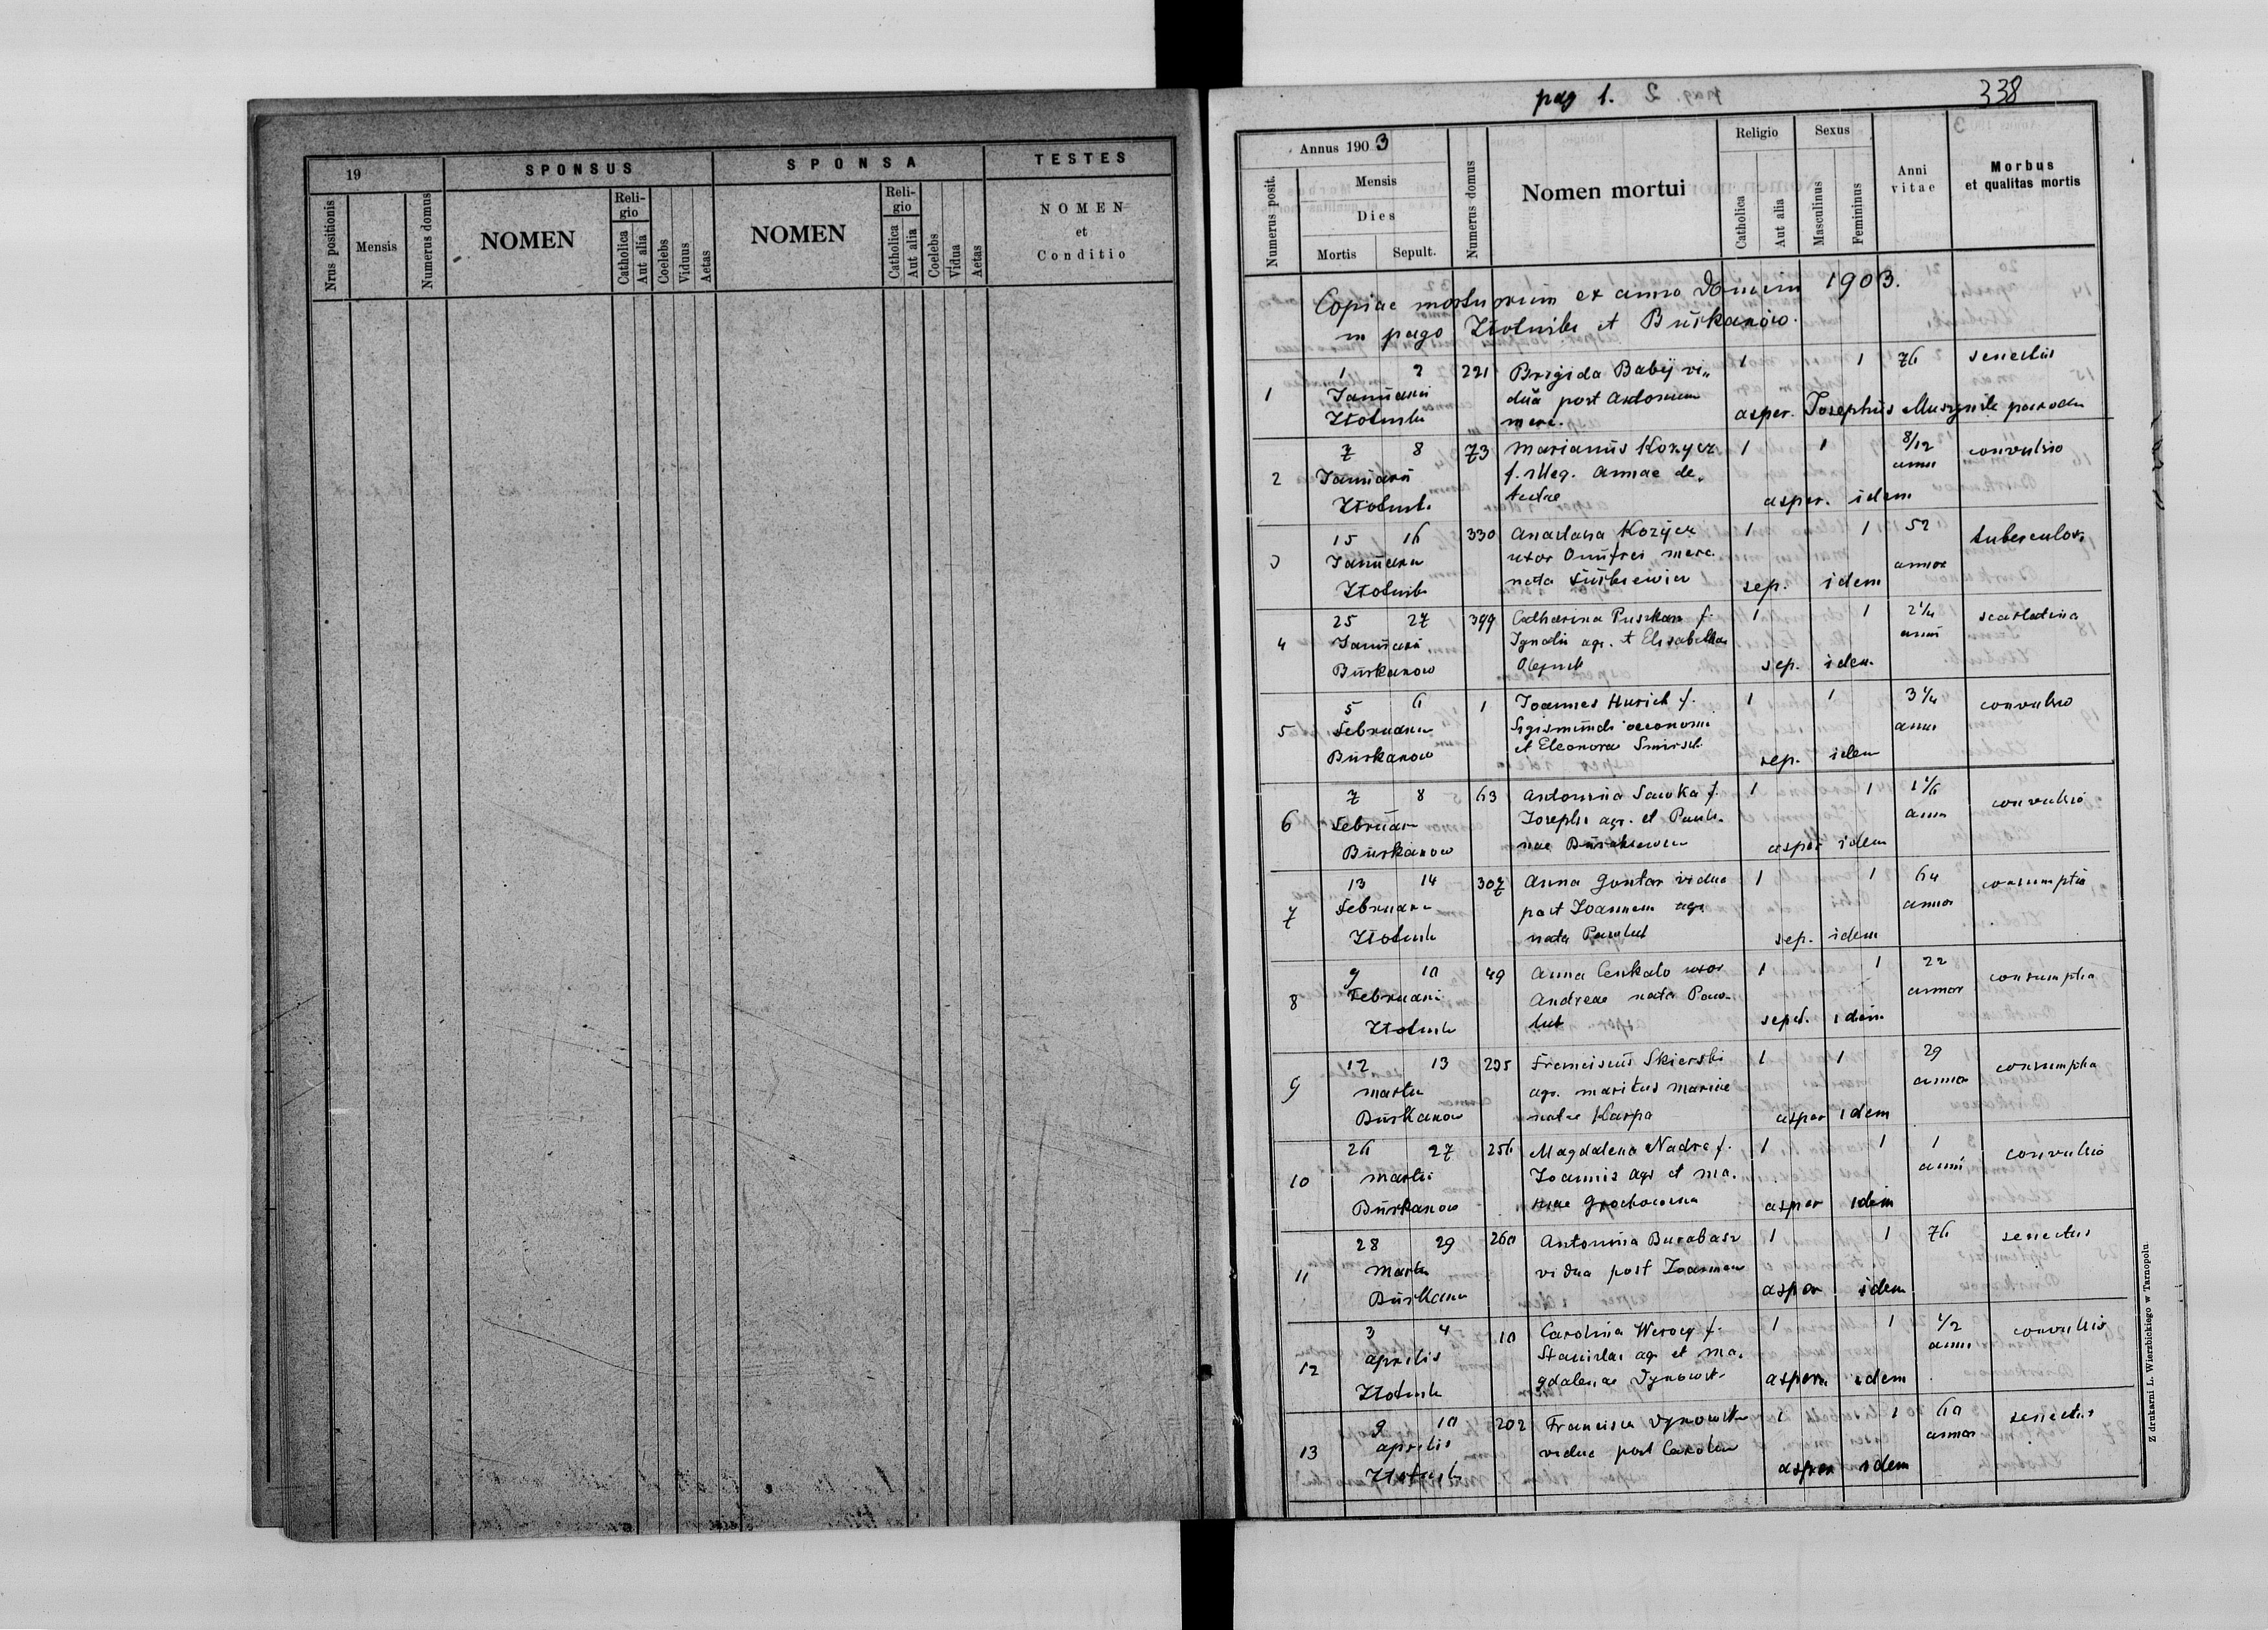 19
SPONSUS
SPONSA
TESTES
Nrus positionis
Mensis
Numerus domus
NOMEN
Religio
Catholica
Aut alia
Coelebs
Viduus
Aetas
NOMEN
Religio
Catholica
Aut alia
Coelebs
Vidua
Aetas
NOMEN
et
Conditio
pag 1.
338
Annus 1903
Numerus posit.
Mensis
Dies
Mortis
Sepult.
Numerus domus
Nomen mortui
Religio
Catholica
Aut alia
Sexus
Masculinus
Femininus
Anni
vitae
Morbus
et qualitas mortis
Copiae mortuorum ex anno Domini 1903.
in pago Złotniki et Burkanów.
1 1 2 221 Brigida Babij vi„ 1 1 76 senectus
Januarii dua post Antonium
Złotniki merc. asper. Josephus
2 7 8 73 Marianus Kozycz 1 1 8/12 convulsio
Januarii f. illeg. Annae de„ anni
Złotnik. asper. idem
3 15 16 330 Anastasia Kozycz 1 1 52 tuberculos
Januarii uxor Onufrei merc. annor
Złotniki nata sep. idem
4 25 27 399 Catharina Puszkar f. 1 1 2 1/4 scarlatina
Januarii Ignatii agr. et Elisabethae anni
Burkanow Olejnik sep. idem
5 5 6 1 Joannes Hurich f. 1 1 3 1/4 convulsio
Februarii Sigismundi oeconomi anni
Burkanow et Eleonora sep. idem
6 7 8 63 Antonina Sawka f. 1 1 1 1/6 convulsio
Februar Josephi agr. et Pauli- anni
Burkanow nae asper idem
7 13 14 307 Anna Gontar vidua 1 1 64 consumptio
Februarii post Joannem agr. annor
Złotnik nata Pawluk sep. idem
8 9 10 49 Anna Cenkalo uxor 1 1 22 consumptio
Februarii Andreae nata Paw- annor
Złotnik luk sepel. idem
9 12 13 295 Franciscus Skierski 1 1 29 consumptio
martii agr. maritus Mariae annor
Burkanow natae Karpa asper idem
10 26 27 256 Magdalena Nadra f. 1 1 1 convulsio
martii Joannis agr et Ma- anni
Burkanow riae asper idem
11 28 29 260 Antonina Burabasz 1 1 76 senectus
Martii vidua post Joannem
Burkanow asper idem
12 3 4 10 Carolina f. 1 1 1/2 convulsio
aprilis Stanislai agr et Ma- anni
Złotnik gdalenae asper. idem
13 9 10 202 Francisca 1 1 60 senectus
aprilis vidua post Carolum annor
Złotnik asper idem
Z drukarni L. Wierzbickiego w Tarnopolu.